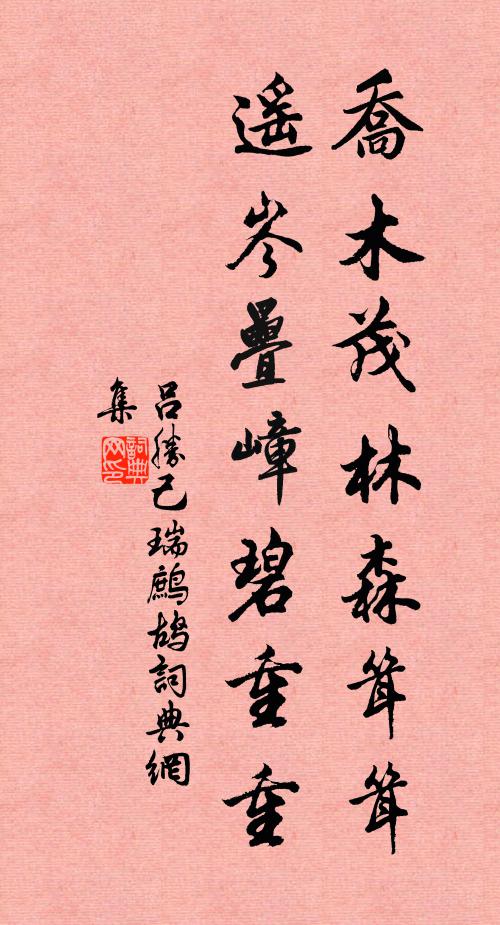 喬木茂林森耸耸
遥岑疊嶂碧重重
吕勝己瑞鷓鴣詞典網
集
詞典網印